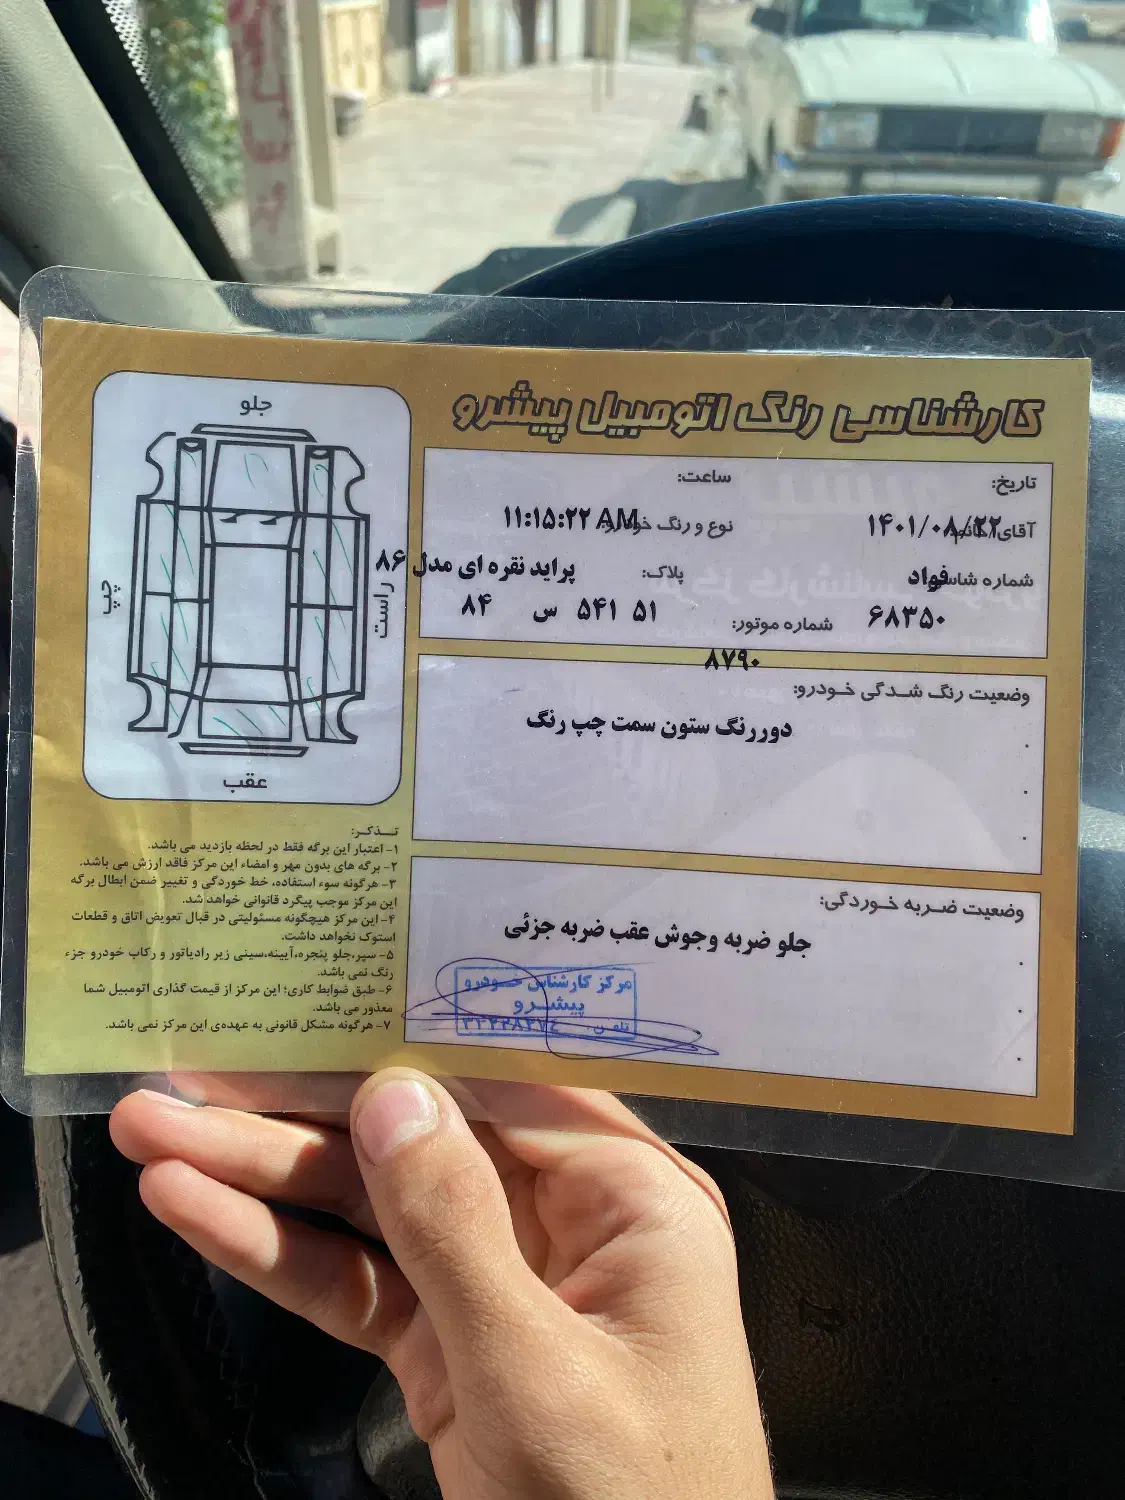 کارشناسی رنگ اتومبیل پیشرو
تاریخ:
ساعت:
۱۴۰۱/۰۸/۲۲
۱۱:۱۵:۲۲ AM
آقای/خانم:
نوع و رنگ خودرو:
فواد
پراید نقره ای مدل ۸۶
شماره شاسی:
پلاک:
۶۸۳۵۰
۵۱ ۵۴۱ س ۸۴
شماره موتور:
۸۷۹۰
وضعیت رنگ شدگی خودرو:
دوررنگ ستون سمت چپ رنگ
وضعیت ضربه خوردگی:
جلو ضربه وجوش عقب ضربه جزئی
مرکز کارشناسی خودرو
پیشرو
تلفن:
جلو
چپ
راست
عقب
تذکر:
۱- اعتبار این برگه فقط در لحظه بازدید می باشد.
۲- برگه های بدون مهر و امضاء این مرکز فاقد ارزش می باشد.
۳- هرگونه سوء استفاده، خط خوردگی و تغییر ضمن ابطال برگه
این مرکز موجب پیگرد قانونی خواهد شد.
۴- این مرکز هیچگونه مسئولیتی در قبال تعویض اتاق و قطعات
استوک نخواهد داشت.
۵- سپر،جلو پنجره،آیینه،سینی زیر رادیاتور و رکاب خودرو جزء
رنگ نمی باشد.
۶- طبق ضوابط کاری؛ این مرکز از قیمت گذاری اتومبیل شما
معذور می باشد.
۷- هرگونه مشکل قانونی به عهده‌ی این مرکز نمی باشد.